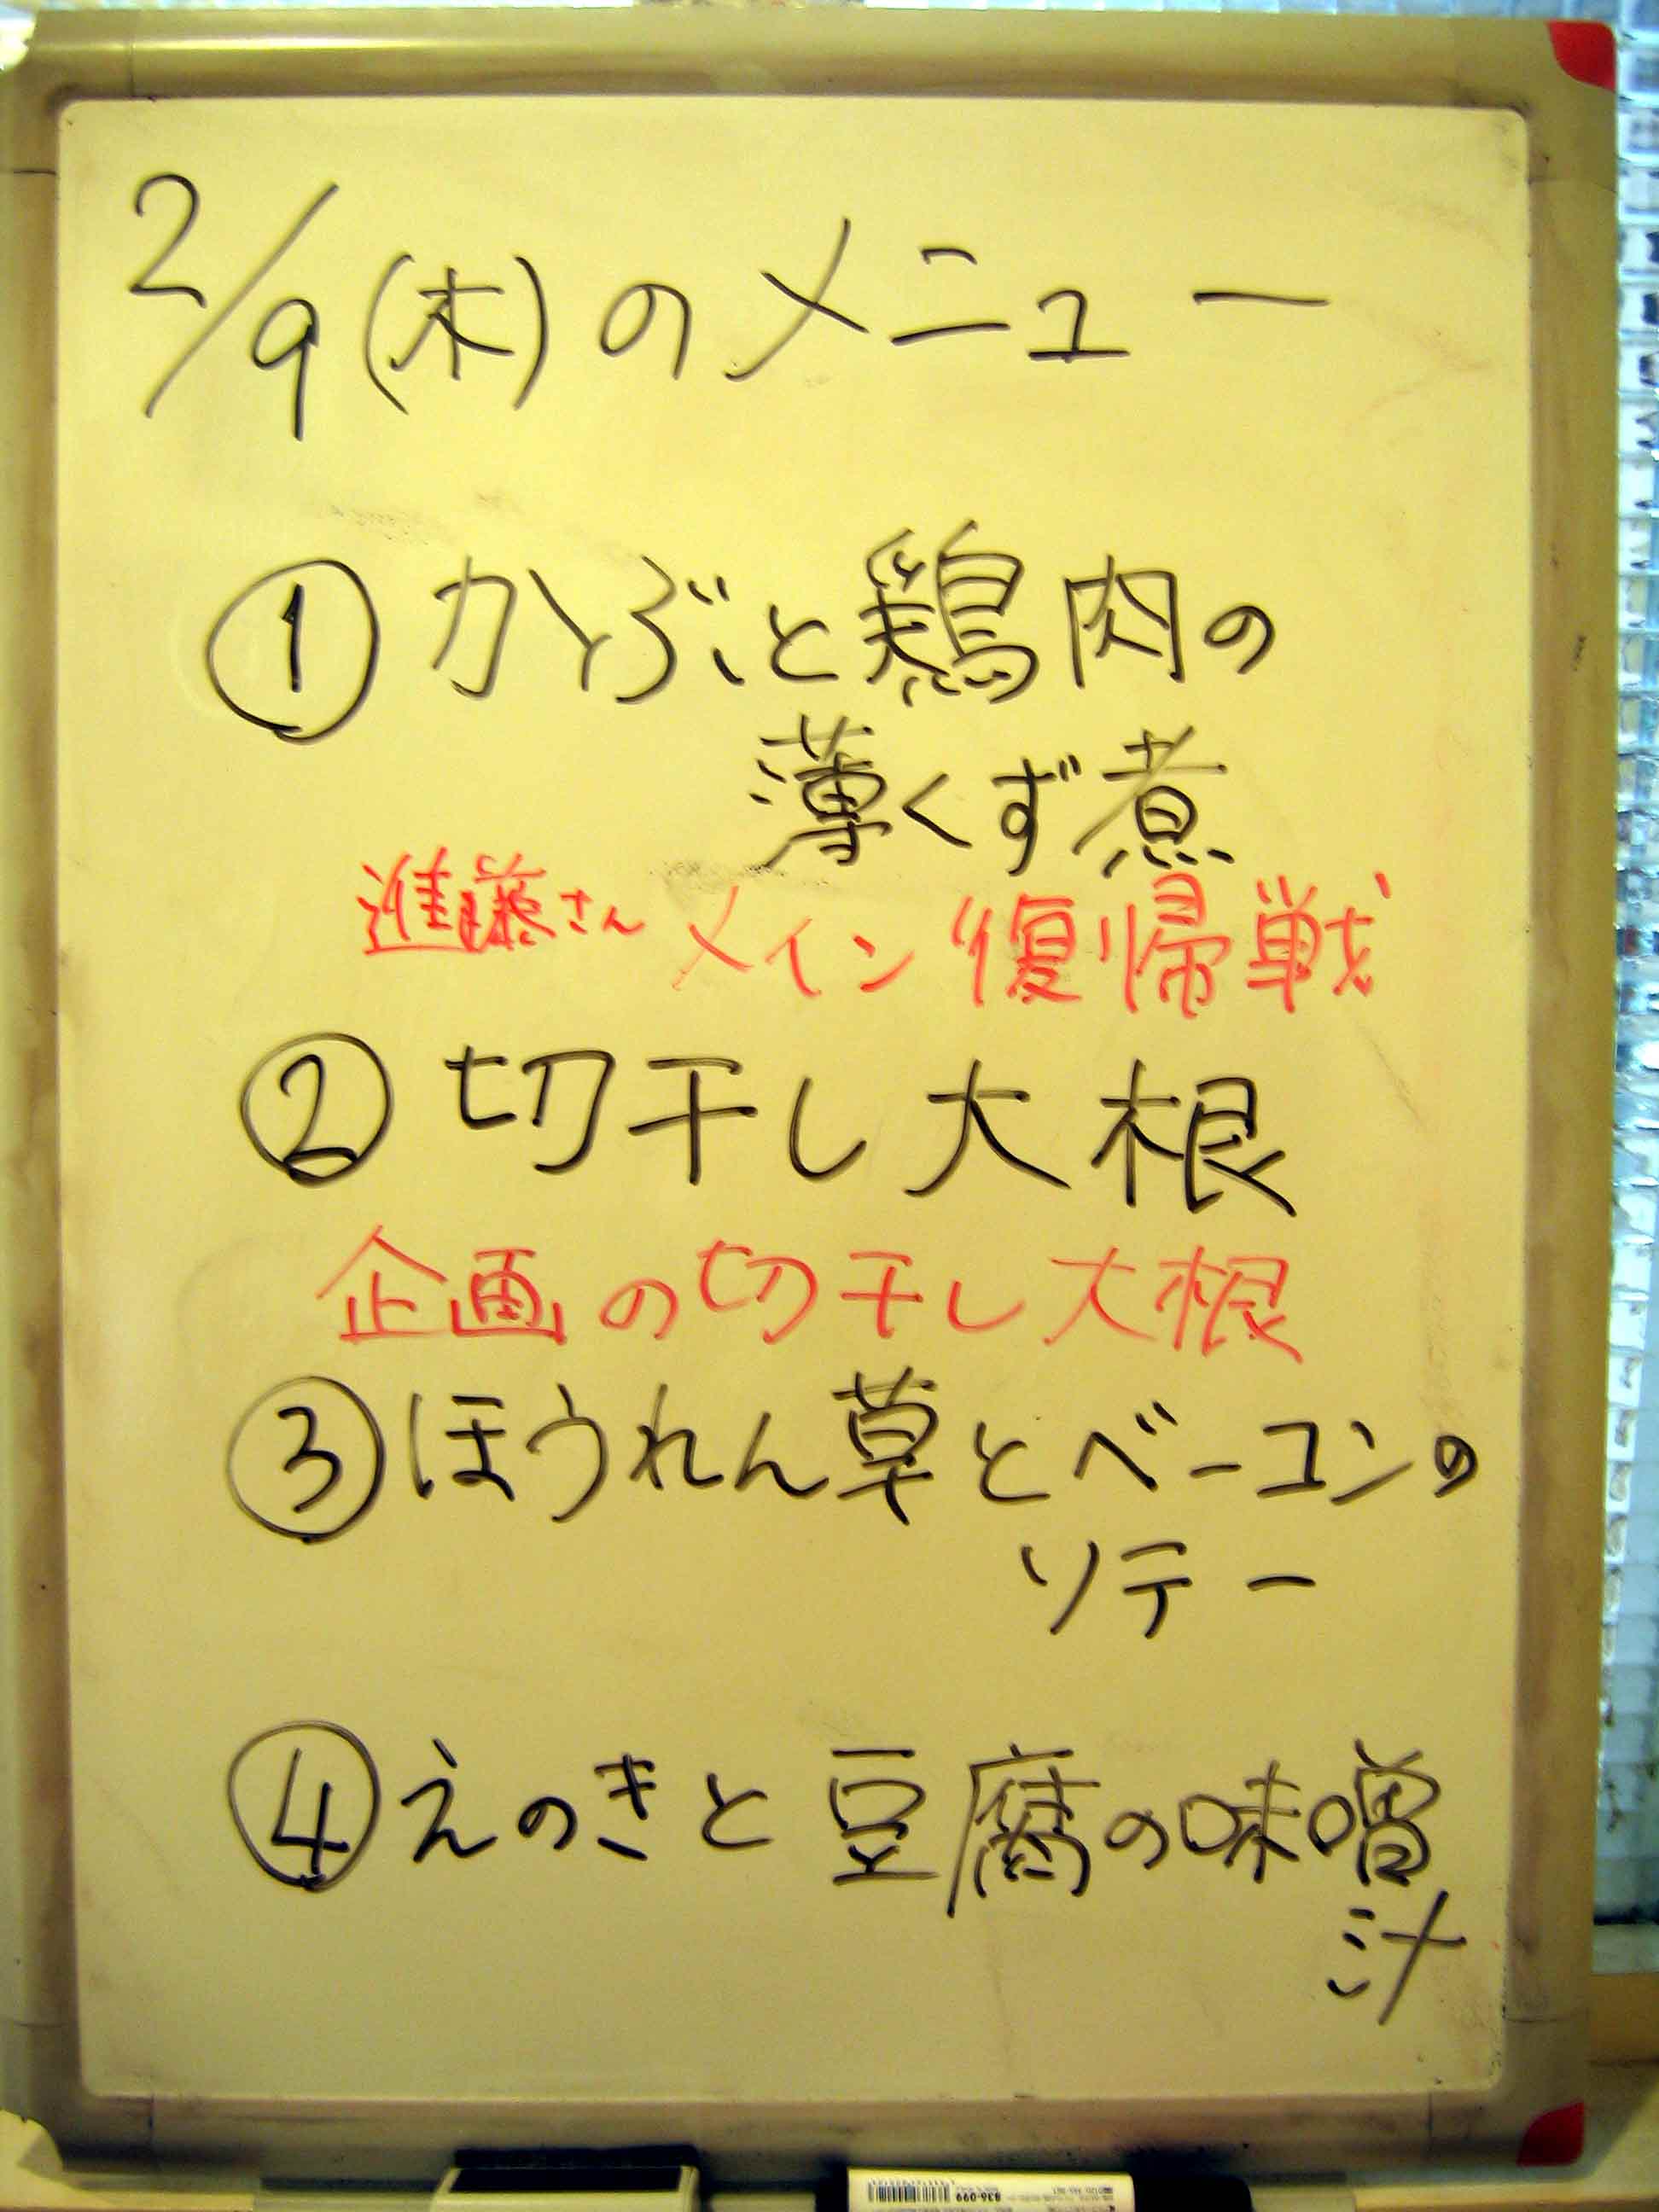 2/9(木)のメニュー
①かぶと鶏肉の
薄くず煮
進藤さん メイン復帰戦
②切干し大根
企画の切干し大根
③ほうれん草とベーコンの
ソテー
④えのきと豆腐の味噌
汁